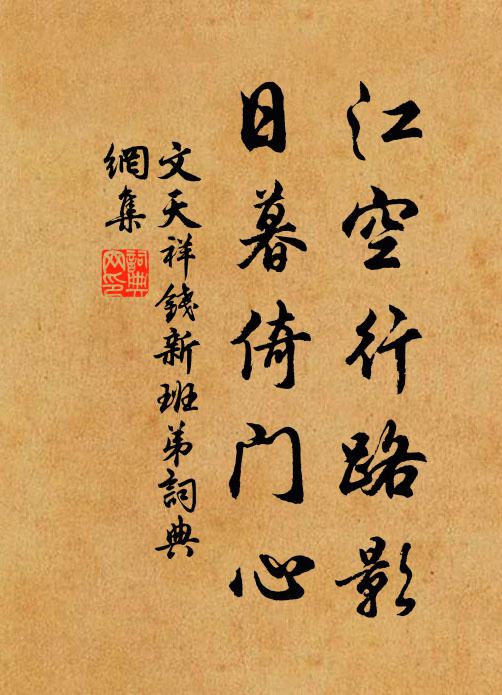 江空行路影
日暮倚门心
文天祥錢新班弟詞典
網集
詞典
网印